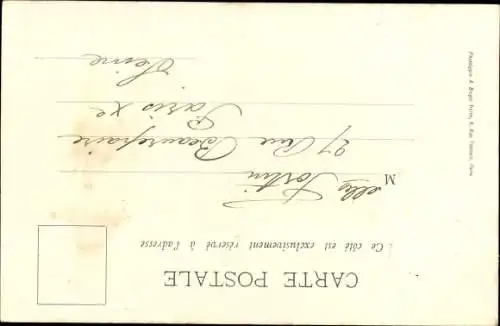 CARTE POSTALE
Ce côté est exclusivement réservé à l'adresse
Melle Fortin
27 Rue Beaurepaire
Paris Xe
Seine
Phototypie A. Bergeret